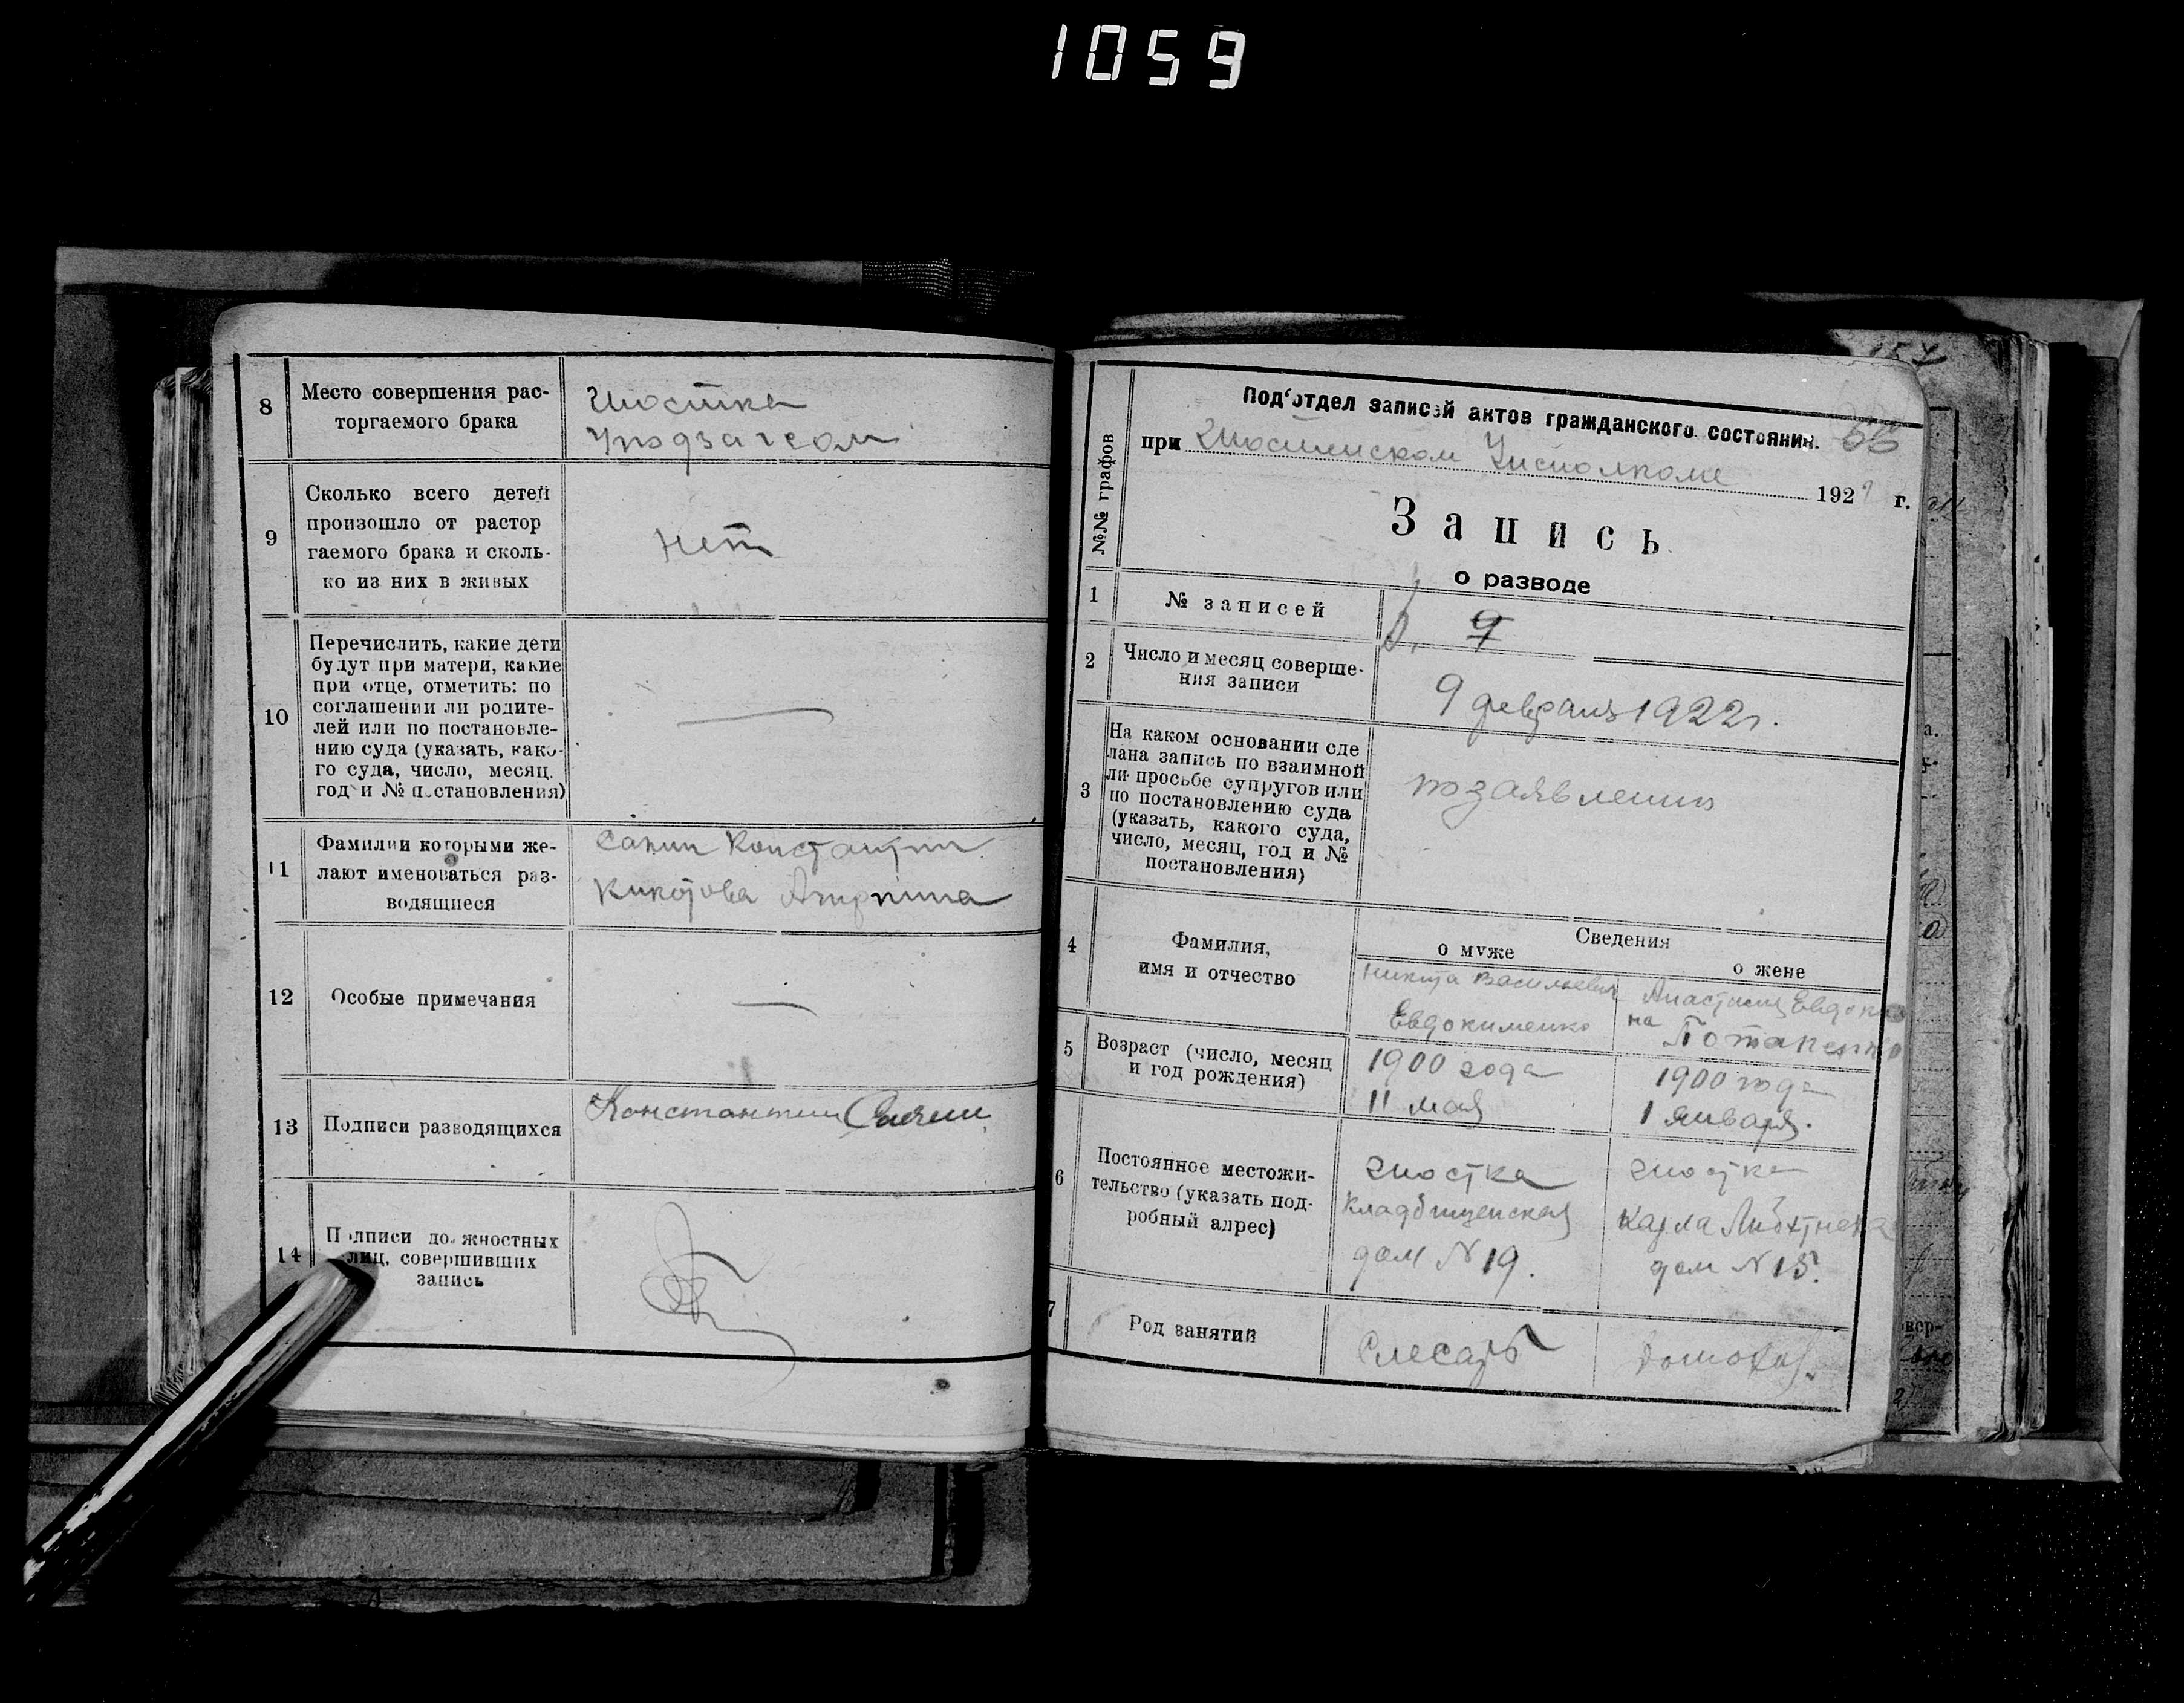 1059
8
Место совершения рас-
торгаемого брака
Шостка
Уподзагсом
9
Сколько всего детей
произошло от растор
гаемого брака и сколь-
ко из них в живых
нет
10
Перечислить, какие дети
будут при матери, какие
при отце, отметить: по
соглашении ли родите-
лей или по постановле-
нию суда (указать, како-
го суда, число, месяц.
год и № постановления)
11
Фамилии которыми же-
лают именоваться раз-
водящиеся
Константин
Кикотова
12
Особые примечания
—
13
Подписи разводящихся
Константин
14
Подписи должностных
лиц, совершивших
запись
№№ графов
Под'отдел записей актов гражданского состояния.
при Шостенском Уисполкоме
1922 г.
Запись
о разводе
1
№ записей
9
2
Число и месяц соверше-
ния записи
9 февраля 1922 г.
3
На каком основании сде
лана запись по взаимной
ли просьбе супругов или
по постановлению суда
(указать, какого суда,
число, месяц, год и №
постановления)
по заявлению
4
Фамилия,
имя и отчество
Сведения
о муже
о жене
Никита Васильевич
Евдокименко
Анастасия
на Потапенко
5
Возраст (число, месяц
и год рождения)
1900 года
11 мая
1900 года
1 января.
6
Постоянное местожи-
тельство (указать под-
робный адрес)
Шостка
Кладбищенская
дом № 19.
Шостка
Карла Либкнехта
дом № 15.
7
Род занятий
Слесарь
домохоз.